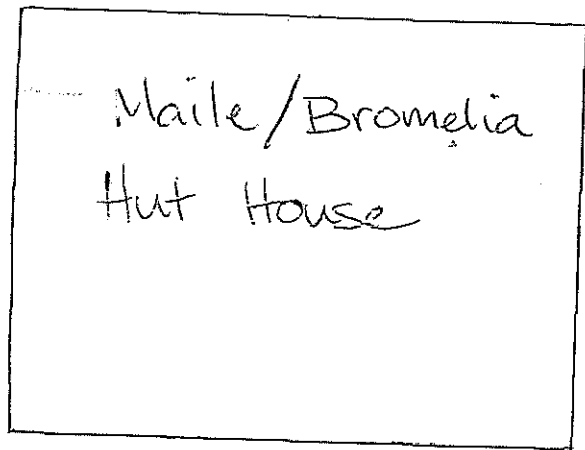 Maile/Bromelia
Hut House